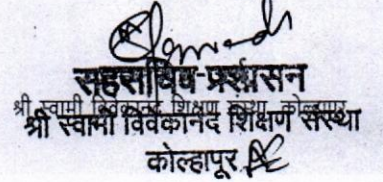 सहसचिव प्रशासन
श्री स्वामी विवेकानंद शिक्षण संस्था, कोल्हापूर
श्री स्वामी विवेकानंद शिक्षण संस्था
कोल्हापूर